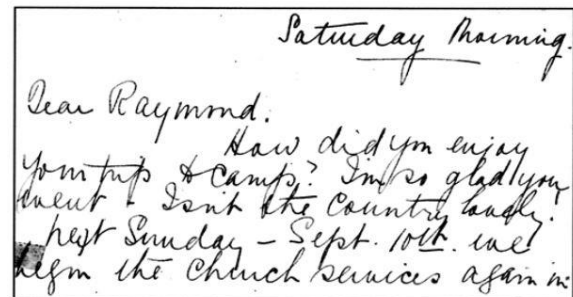 Saturday Morning.
Dear Raymond.
How did you enjoy
your trip to camp? I'm so glad you
went - Isn't the country lovely.
Next Sunday - Sept. 10th. we
begin the Church services again in